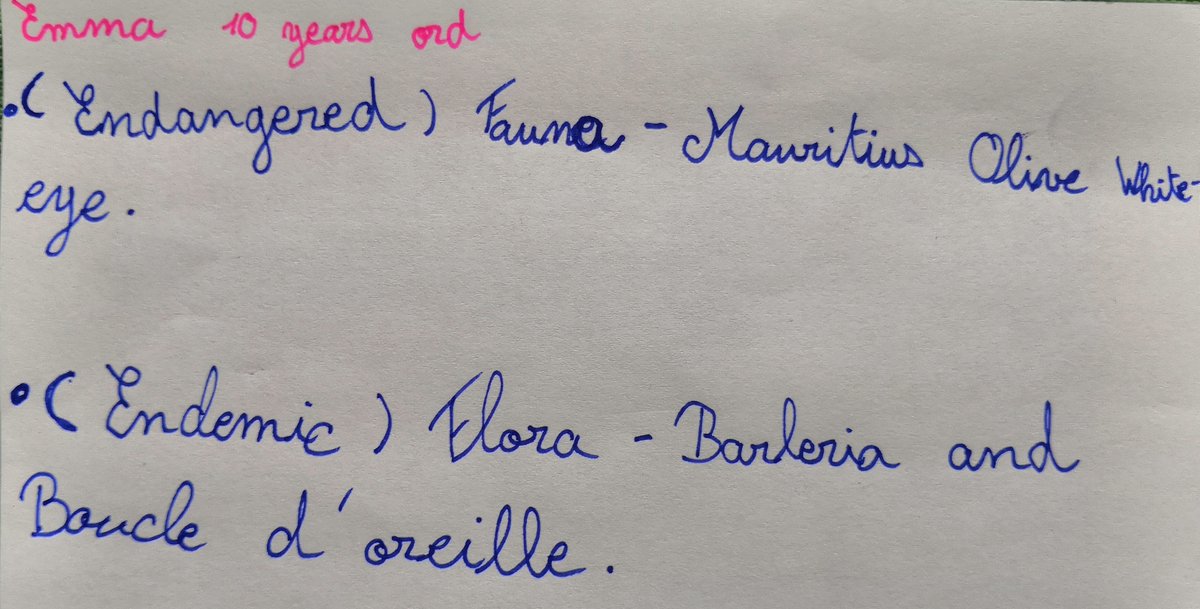 Emma 10 years ord
•(Endangered) Fauna - Mauritius Olive White-
eye.
•(Endemic) Flora - Barleria and
Boucle d'oreille.